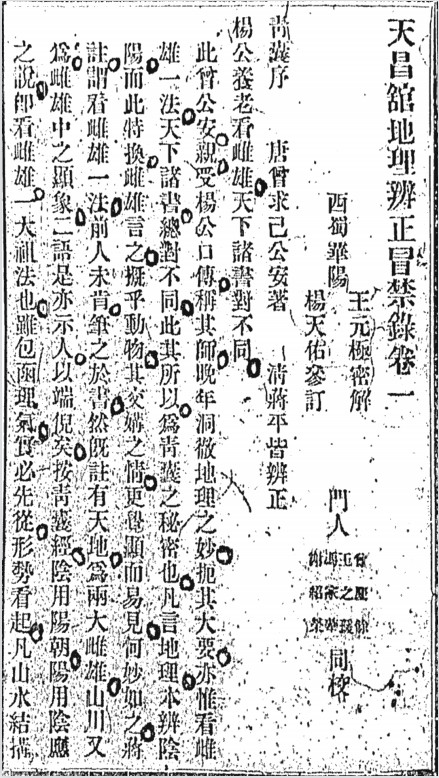 天昌舘地理辨正冒禁錄卷一
西蜀華陽
王元極密解
楊天佑參訂
門人
同校
靑囊序 唐曾求己公安著 淸蔣平皆辨正
楊公養老看雌雄天下諸書對不同
此曾公安親受楊公口傳稱其師晚年洞徹地理之妙扼其大要亦惟看雌
雄一法天下諸書總對不同此其所以爲靑囊之秘密也凡言地理本辨陰
陽而此特換雌雄言之擬乎動物其交媾之情更覺顯而易見何妙如之蔣
註謂看雌雄一法前人未肯筆之於書然旣註有天地爲兩大雌雄山川又
爲雌雄中之顯象二語是亦示人以端倪矣按靑囊經陰用陽朝陽用陰應
之說卽看雌雄一大祖法也雖包函理氣實必先從形勢看起凡山水結構